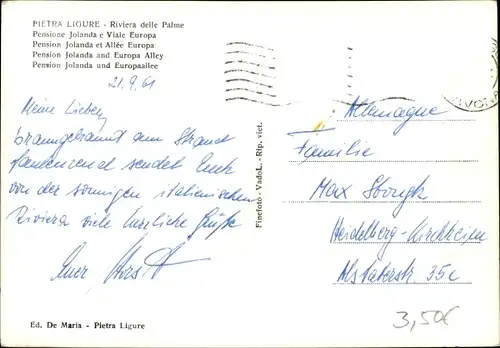 PIETRA LIGURE - Riviera delle Palme
Pensione Jolanda e Viale Europa
Pension Jolanda et Allée Europa
Pension Jolanda and Europa Alley
Pension Jolanda und Europaallee
21.9.61
Meine Lieben,
braungebrannt am Strand
faulenzend sendet Euch
von der sonnigen italienischen
Riviera viele herzliche Grüße
Euer Horst
Ed. De Maria - Pietra Ligure
Finefoto - VadoL. - Rip. viet.
Allemagne
Familie
Max
Heidelberg-Kirchheim
35c
3,50€